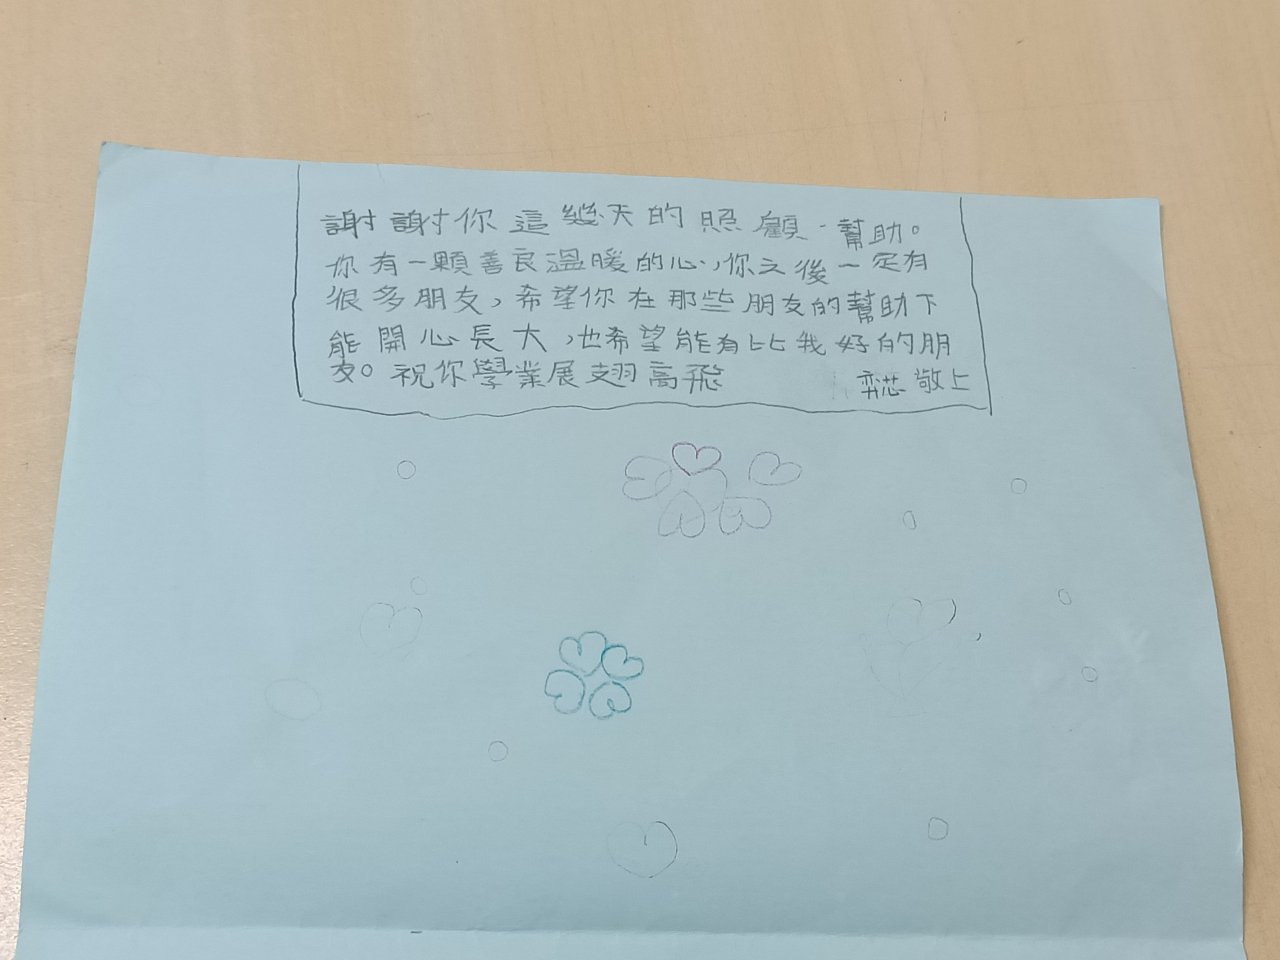 謝謝你這幾天的照顧、幫助。
你有一顆善良溫暖的心,你之後一定有
很多朋友,希望你在那些朋友的幫助下
能開心長大,也希望能有比我好的朋
友。祝你學業展翅高飛 弈芯 敬上